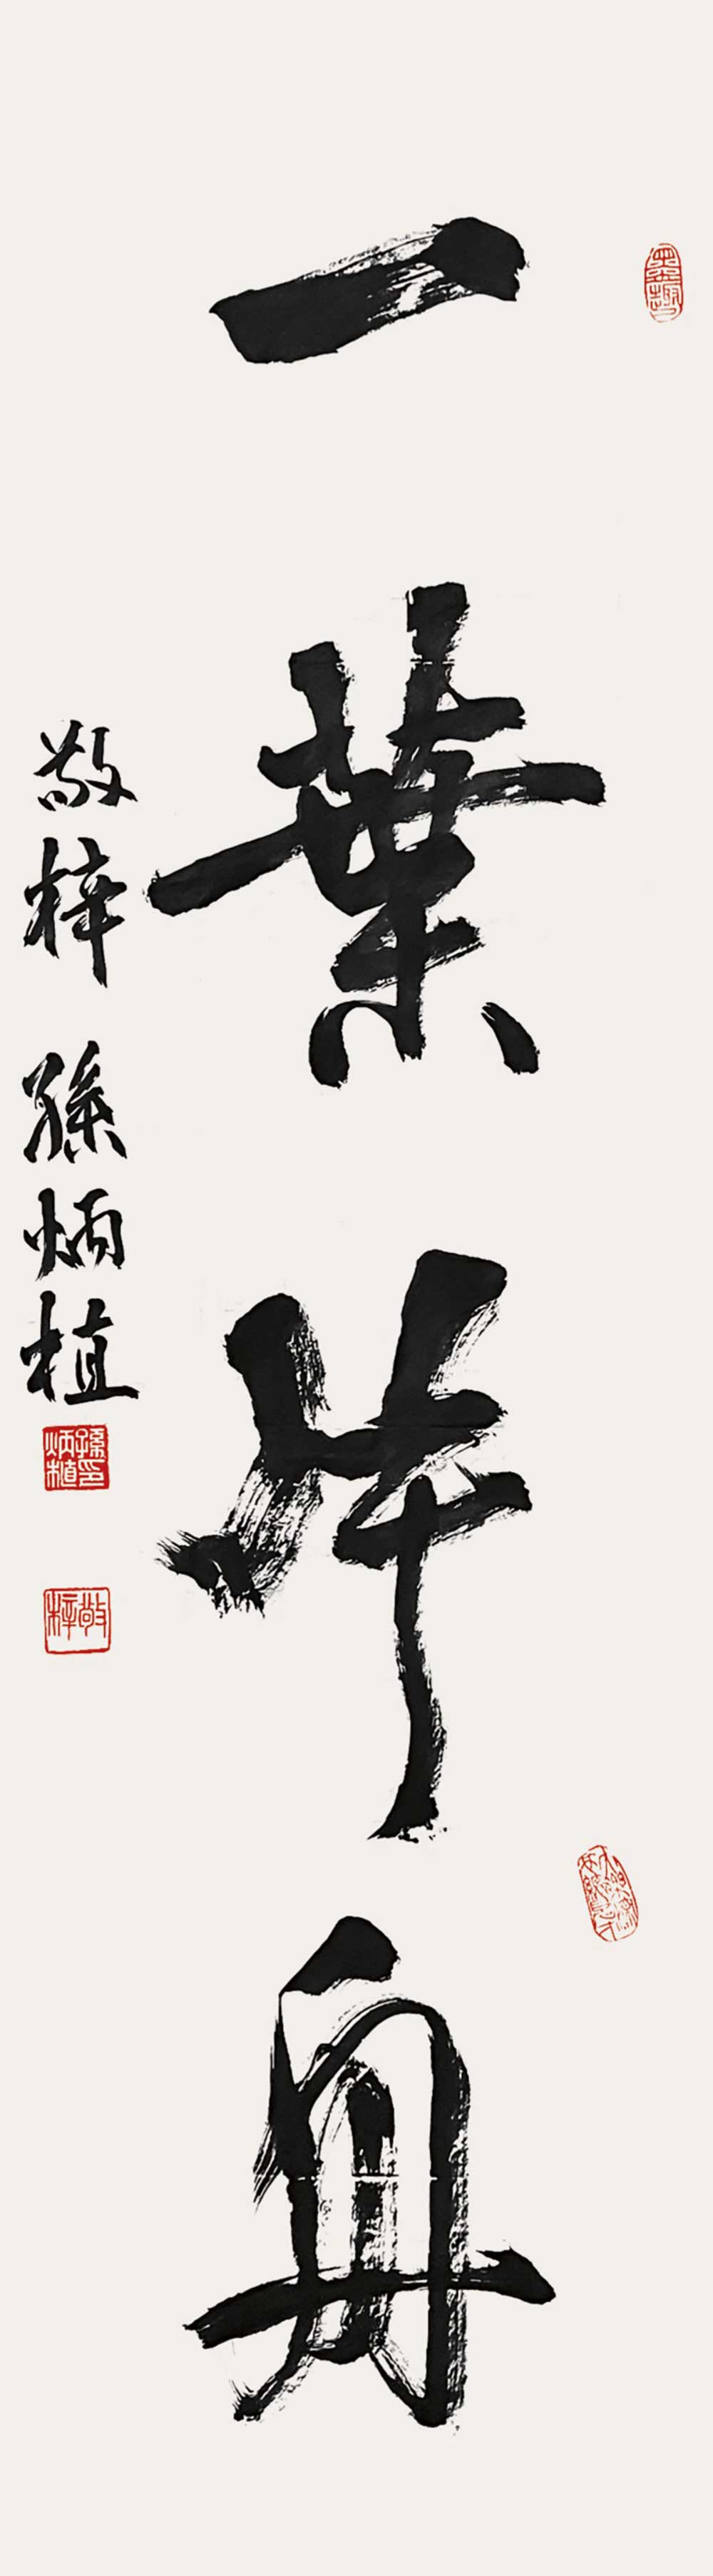 一葉片舟
敬梓 孫炳植
孫炳植印
敬梓